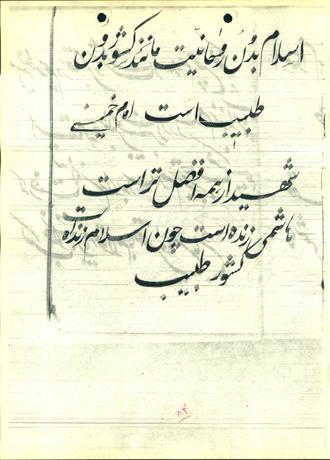 اسلام بدون روحانیت مانند کشور بدون
طبیب است امام خمینی
شهید از همه افضل تر است
هاشمی زنده است چون اسلام زنده است
کشور طبیب
۸۴